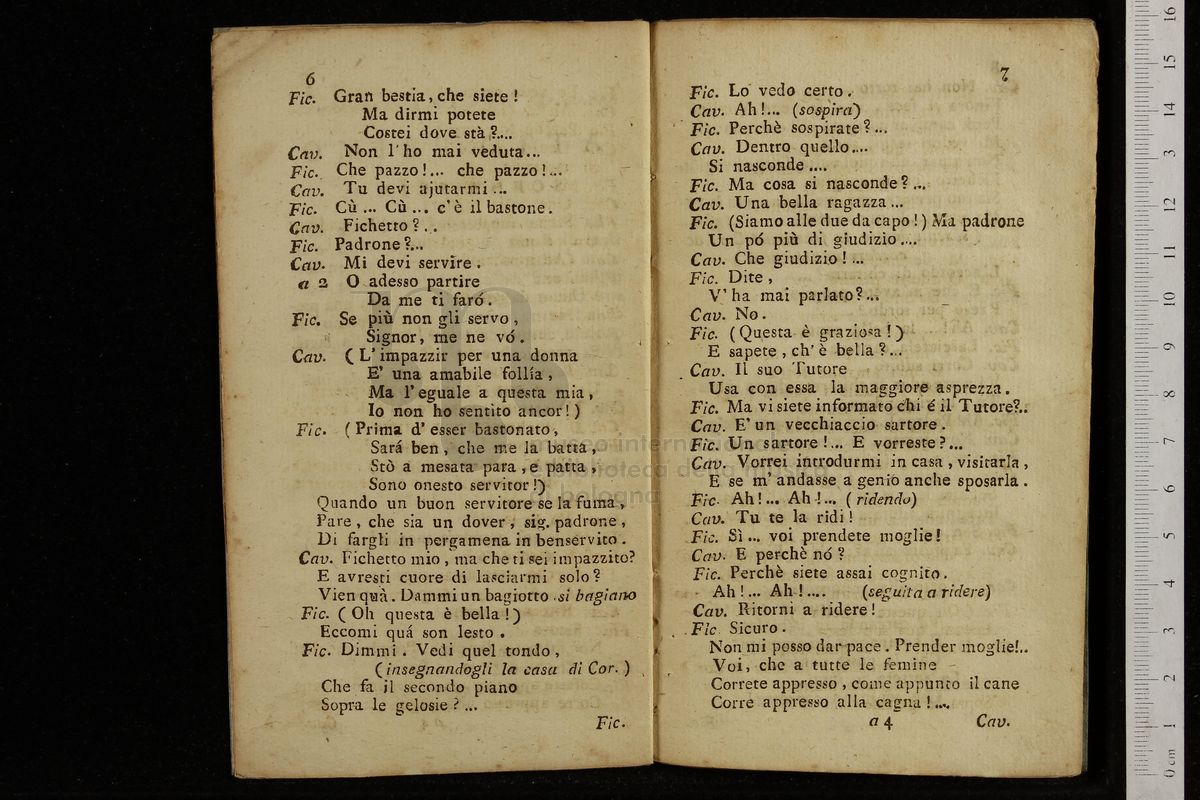 6
Fic. Gran bestia, che siete !
Ma dirmi potete
Costei dove stà ?....
Cav. Non l'ho mai veduta...
Fic. Che pazzo !... che pazzo !...
Cav. Tu devi ajutarmi ...
Fic. Cù ... Cù ... c'è il bastone.
Cav. Fichetto ? . .
Fic. Padrone ?...
Cav. Mi devi servire .
a 2 O adesso partire
Da me ti faró .
Fic. Se più non gli servo ,
Signor, me ne vó .
Cav. ( L'impazzir per una donna
E' una amabile follía ,
Ma l'eguale a questa mia ,
Io non ho sentito ancor ! )
Fic. ( Prima d' esser bastonato ,
Sará ben , che me la batta ,
Stò a mesata para , e patta ,
Sono onesto servitor !)
Quando un buon servitore se la fuma ,
Pare , che sia un dover , sig. padrone ,
Di fargli in pergamena in benservito .
Cav. Fichetto mio , ma che ti sei impazzito?
E avresti cuore di lasciarmi solo ?
Vien quà . Dammi un bagiotto . si bagiano
Fic. ( Oh questa è bella ! )
Eccomi quá son lesto .
Fic. Dimmi . Vedi quel tondo ,
( insegnandogli la casa di Cor. )
Che fa il secondo piano
Sopra le gelosie ? ...
Fic.
7
Fic. Lo vedo certo .
Cav. Ah !... (sospira)
Fic. Perchè sospirate ? ...
Cav. Dentro quello ....
Si nasconde ....
Fic. Ma cosa si nasconde ? ...
Cav. Una bella ragazza ...
Fic. (Siamo alle due da capo ! ) Ma padrone
Un pó più di giudizio ....
Cav. Che giudizio ! ...
Fic. Dite ,
V' ha mai parlato ?...
Cav. No .
Fic. ( Questa è graziosa ! )
E sapete , ch' è bella ? ...
Cav. Il suo Tutore
Usa con essa la maggiore asprezza .
Fic. Ma vi siete informato chi é il Tutore?..
Cav. E' un vecchiaccio sartore .
Fic. Un sartore !... E vorreste ?...
Cav. Vorrei introdurmi in casa , visitarla ,
E se m' andasse a genio anche sposarla .
Fic. Ah !... Ah !... ( ridendo)
Cav. Tu te la ridi !
Fic. Sì ... voi prendete moglie !
Cav. E perchè nó ?
Fic. Perchè siete assai cognito .
Ah ! ... Ah ! .... (seguita a ridere)
Cav. Ritorni a ridere !
Fic Sicuro .
Non mi posso dar pace . Prender moglie!..
Voi, che a tutte le femine
Correte appresso , come appunto il cane
Corre appresso alla cagna ! ....
a 4 Cav.
museo internazionale
biblioteca della musica
bologna
0 cm 1 2 3 4 5 6 7 8 9 10 11 12 13 14 15 16